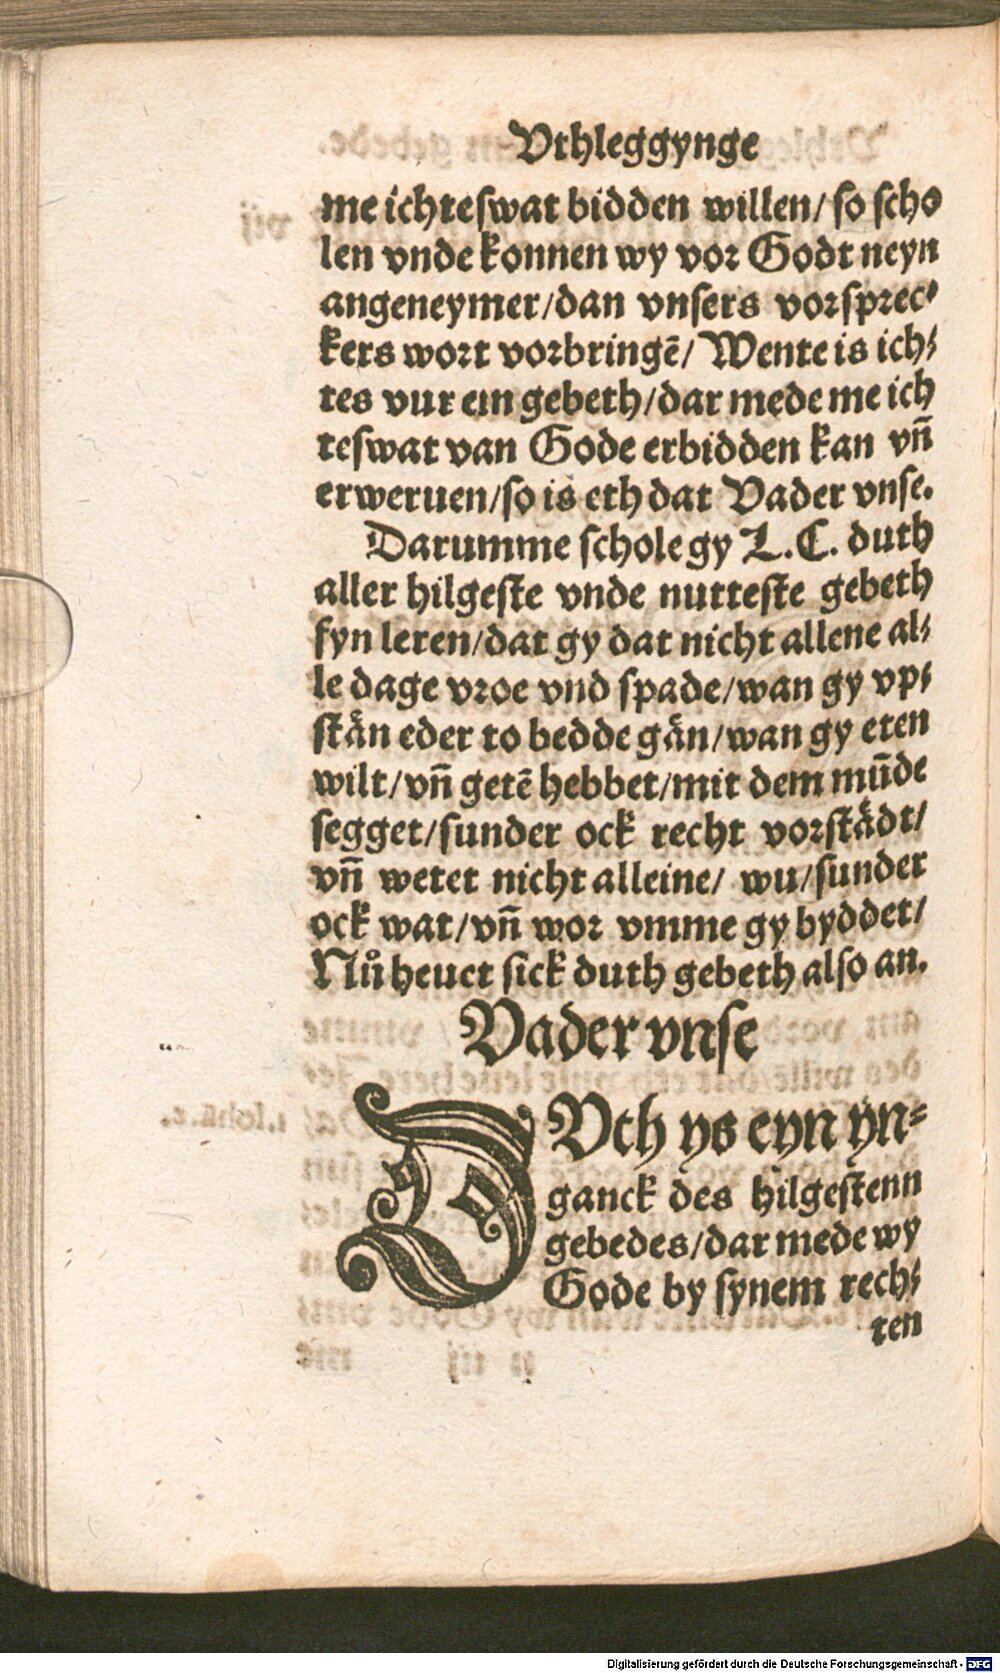 Vthleggynge
me ichteſwat bidden willen/ ſo ſcho
len vnde konnen wy vor Godt neyn
angeneymer/dan vnſers vorſprec⸗
kers wort vorbringē/ Wente is ich⸗
tes vur ein gebeth/dar mede me ich
teſwat van Gode erbidden kan vn̄
erweruen/ſo is eth dat Vader vnſe.
Darumme ſchole gy L. C. duth
aller hilgeſte vnde nutteſte gebeth
fyn leren/dat gy dat nicht allene al⸗
le dage vroe vnd ſpade/wan gy vp⸗
ſtån eder to bedde gån/wan gy eten
wilt/vn̄ getē hebbet/mit dem mūde
ſegget/ſunder ock recht vorſtådt/
vn̄ wetet nicht alleine/ wu/ſunder
ock wat/vn̄ wor vmme gy byddet/
Nů heuet ſick duth gebeth alſo an.
Vader vnſe
DVth ys eyn yn⸗
ganck des hilgeſtenn
gebedes/dar mede wy
Gode by ſynem rech⸗
ten
Digitalisierung gefördert durch die Deutsche Forschungsgemeinschaft - DFG